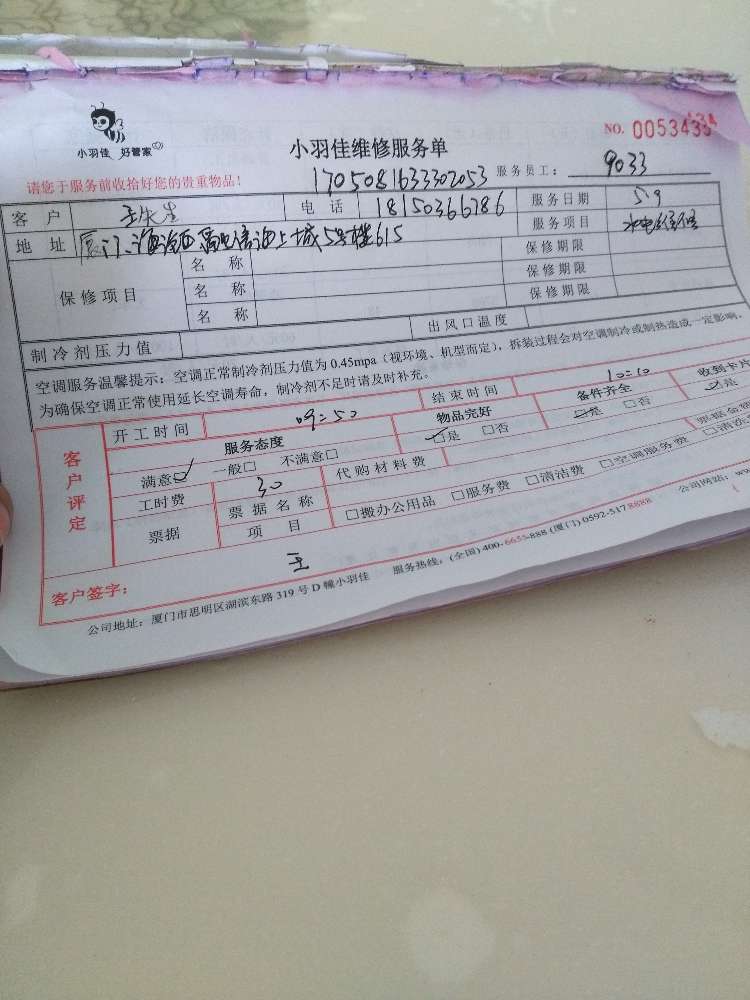 小羽佳 好管家
小羽佳维修服务单
NO. 0053433
请您于服务前收拾好您的贵重物品!
1705081633302053
服务员工: 9033
客户 王先生 电话 18150366786 服务日期 5.9
地址 厦门 5号楼615 服务项目 水电维修
保修项目 名称 保修期限
名称 保修期限
名称 保修期限
制冷剂压力值 出风口温度
空调服务温馨提示:空调正常制冷剂压力值为0.45mpa(视环境、机型而定),拆装过程会对空调制冷或制热造成一定影响,
为确保空调正常使用延长空调寿命,制冷剂不足时请及时补充。
客户评定
开工时间 09:50 结束时间 10:10
服务态度 物品完好 备件齐全 收到卡片
满意☑ 一般□ 不满意□ ☑是 □否 ☑是 □否 ☑是
工时费 30 代购材料费
票据 票据名称 □搬办公用品 □服务费 □清洁费 □空调服务费
项目
客户签字: 王
公司地址:厦门市思明区湖滨东路319号D幢小羽佳 服务热线:(全国)400-6655-888 (厦门)0592-5178888 公司网站: